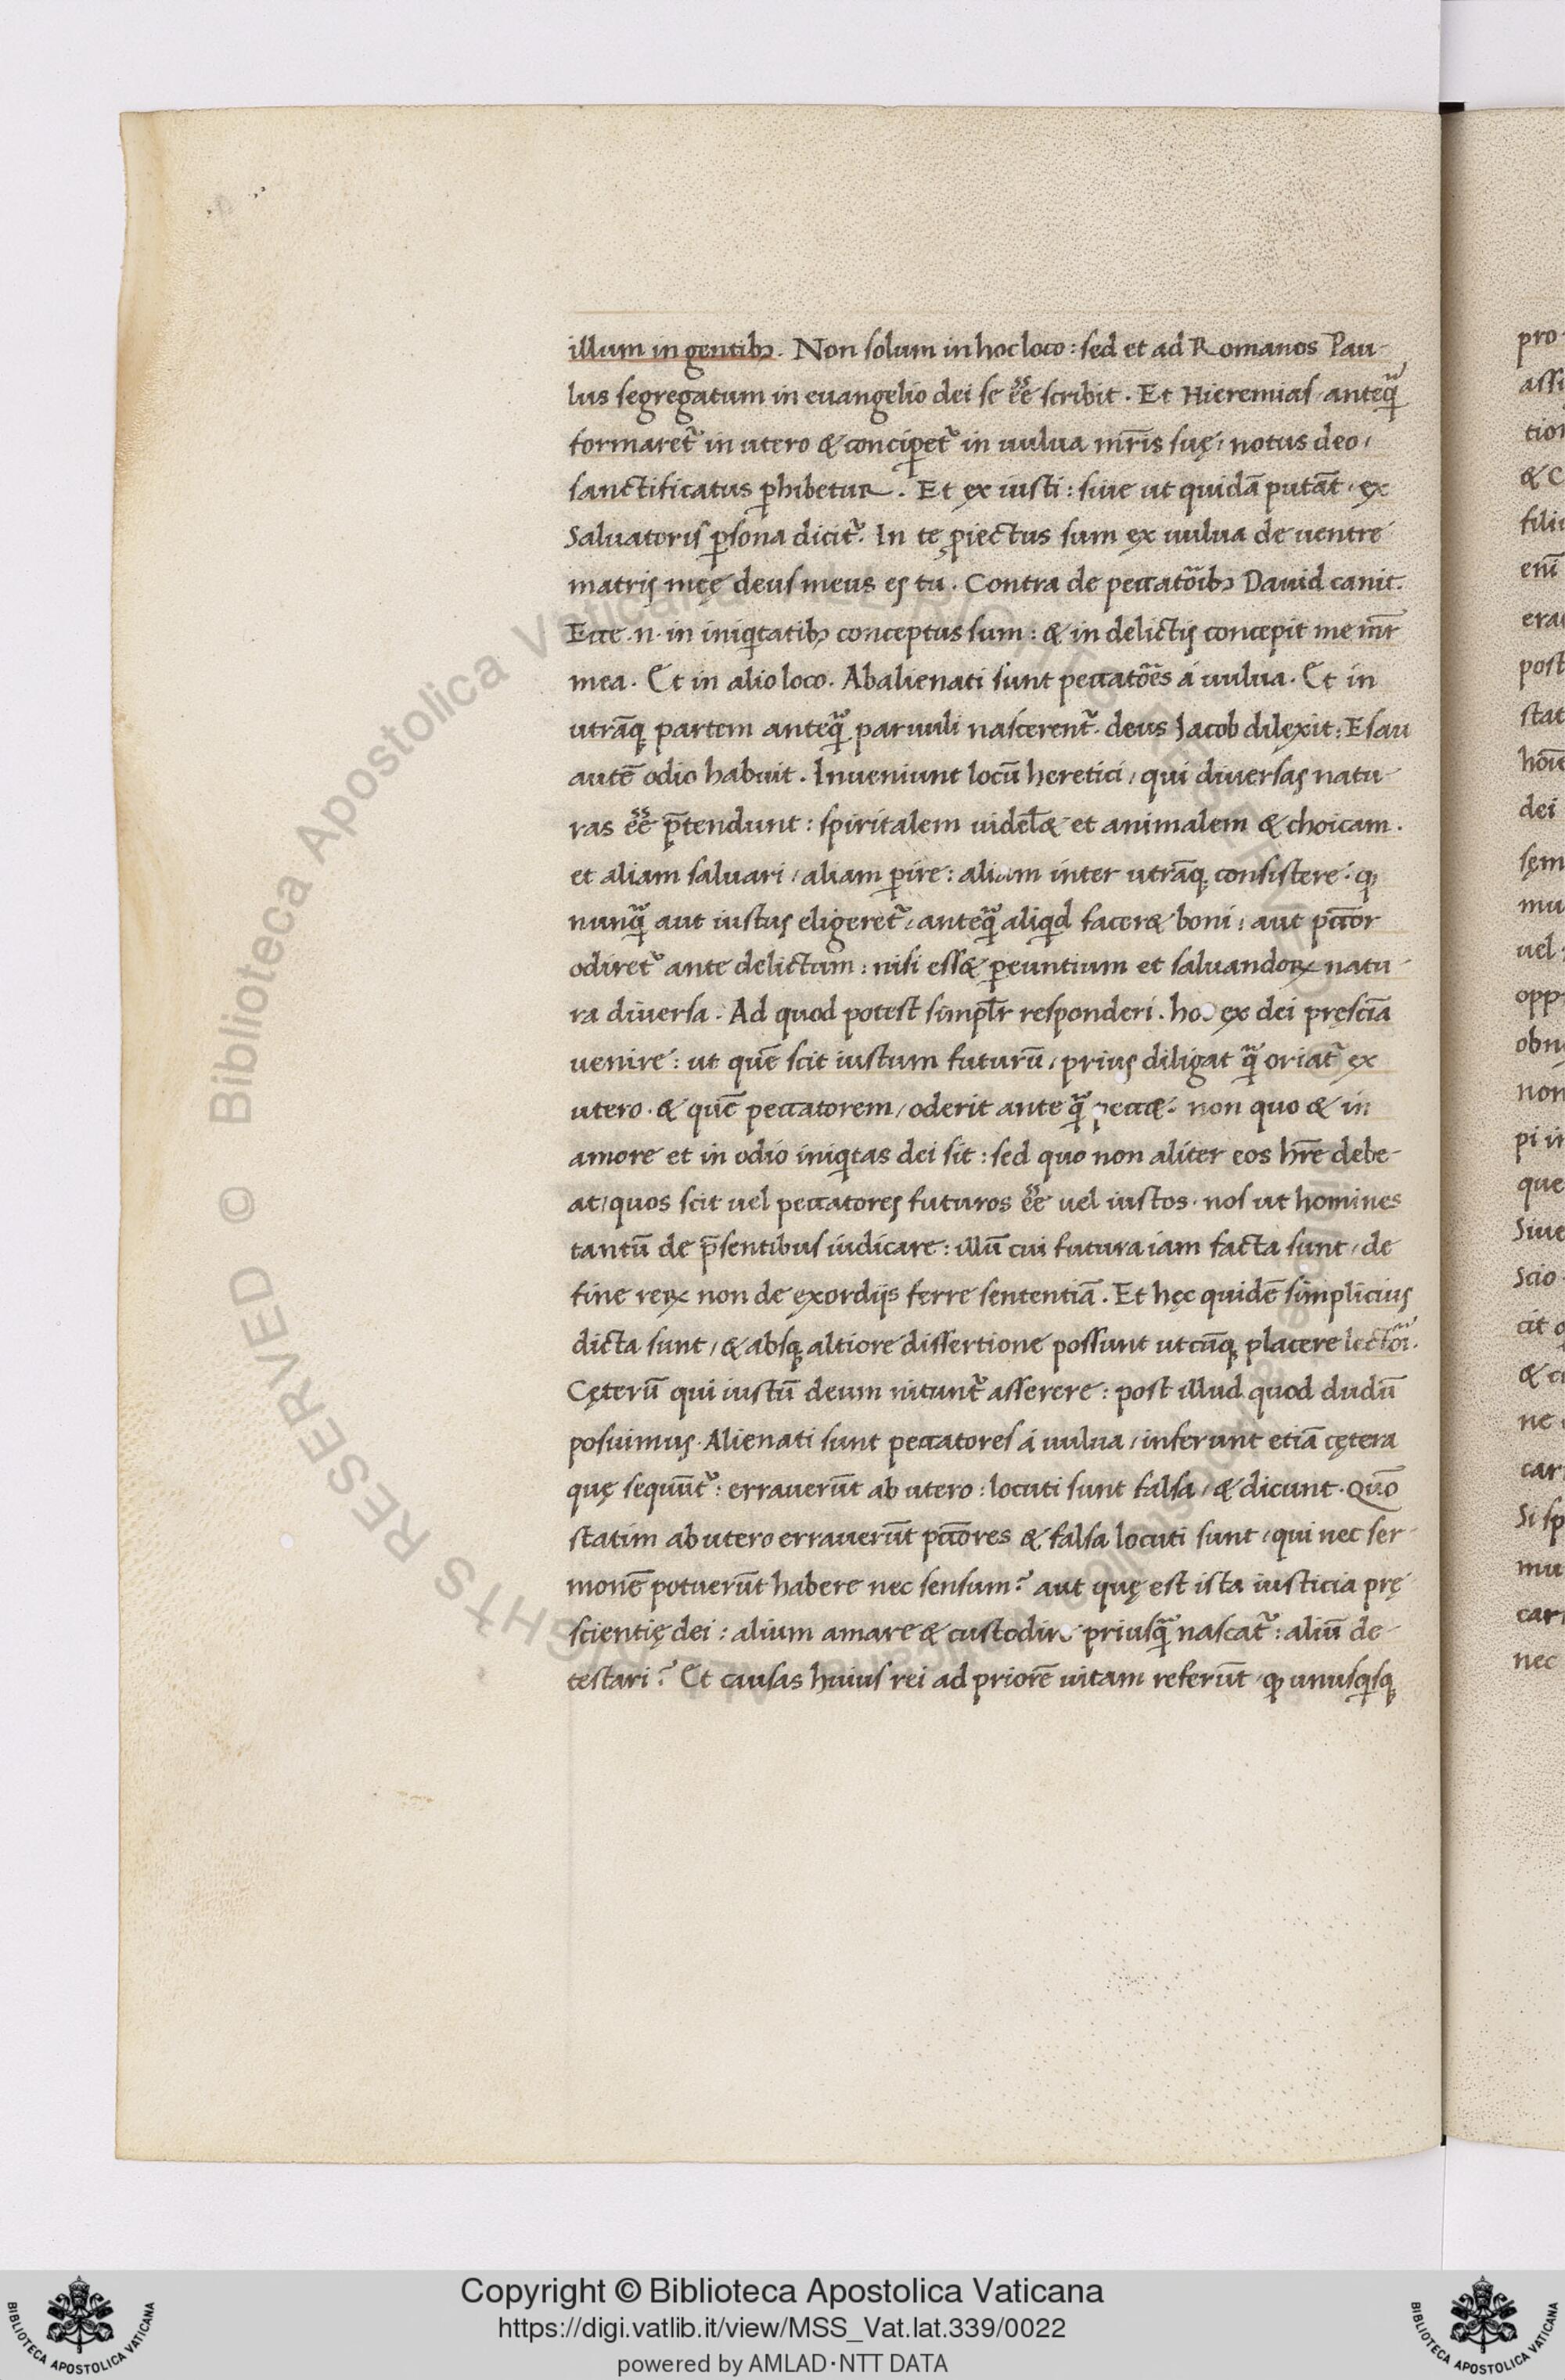 illum in gentibꝫ. Non solum in hoc loco: sed et ad Romanos Pau-
lus segregatum in euangelio dei se ee᷒ scribit. Et Hieremias anteqᷓ
formaret᷑ in utero & concip̱et᷑ in uulua mr̄is suę, notus deo,
sanctificatus ꝑhibetur. Et ex iusti: siue ut quidā putāt, ex
Saluatoris ꝑsona dicit᷑. In te ꝓiectus sum ex uulua de uentre
matris męę deus meus es tu. Contra de peccatoībꝫ Dauid canit.
Ecce .n. in iniqtatibꝫ conceptus sum: & in delictis concepit me mr̄
mea. Et in alio loco. Abalienati sunt peccatōes á uulua. Et in
utrāqꝫ partem anteqᷓ paruuli nascerent᷑. deus Jacob dilexit: Esau
autē odio habuit. Inueniunt locū heretici, qui diuersas natu-
ras ee᷒ p̄tendunt: spiritalem uidel& et animalem & choicam.
et aliam saluari, aliam ꝑire: aliam inter utrāqꝫ consistere: ꝙ
nunqᷓ aut iustus eligeret᷑, anteqᷓ aliqd facer& boni, aut pctōr
odiret᷑ ante delictum: nisi ess& ꝑeuntium et saluandoꝝ natu-
ra diuersa. Ad quod potest simplr̄ responderi. hoc ex dei pręsciā
uenire: ut quē scit iustum futurū, prius diligat qᷓ oriat᷑ ex
utero. & quē peccatorem, oderit ante qᷓ pecc&. non quo & in
amore et in odio iniqtas dei sit: sed quo non aliter eos hr̄e debe-
at, quos scit uel peccatores futuros ee᷒ uel iustos. nos ut homines
tantū de p̄sentibus iudicare: illū cui futura iam facta sunt, de
fine reꝝ non de exordijs ferre sententiā. Et hęc quidē simplicius
dicta sunt, & absqꝫ altiore dissertione possunt utcūqꝫ placere lectōi.
Cęterū qui iustū deum nitunt᷑ asserere: post illud quod dudū
posuimus. Alienati sunt peccatores á uulua, inferunt etiā cętera
quę sequūt᷑: errauerūt ab utero: locuti sunt falsa, & dicunt. Quō
statim ab utero errauerūt pctōres & falsa locuti sunt, qui nec ser-
monē potuerūt habere nec sensum? aut quę est ista iusticia prę-
scientię dei: alium amare & custodire priusqᷓ nascat᷑: aliū de-
testari? Et causas huius rei ad priorē uitam referūt, ꝙ unusqsqꝫ
pro
assu
& c
filiu
enī
post
stat
dei
mu
uel
opp
obn
non
pi in
que
Siue
Scio
cit
ne
car
Si sp
mu
car
nec
© Biblioteca Apostolica Vaticana ALL RIGHTS RESERVED
Copyright © Biblioteca Apostolica Vaticana
https://digi.vatlib.it/view/MSS_Vat.lat.339/0022
powered by AMLAD·NTT DATA
BIBLIOTECA APOSTOLICA VATICANA
BIBLIOTECA APOSTOLICA VATICANA